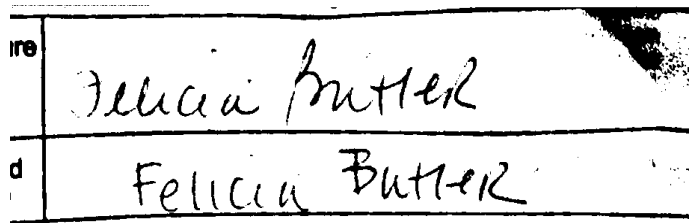 re Felicia Butler
d Felicia Butler